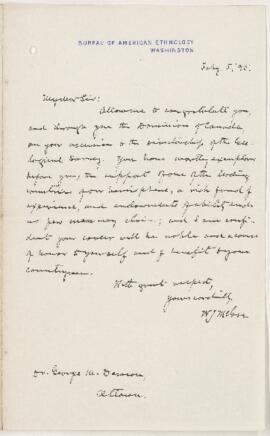 BUREAU OF AMERICAN ETHNOLOGY
WASHINGTON
My dear Sir:
Allow me to congratulate you,
and through you the Dominion of Canada
on your accession to the directorship of the Geo-
logical Survey. You have worthy exemplars
before you, the support of one of the leading
countries
experience, and endowments
as few men may
your career will be noble and a source
of honor to yourself and of benefit to your
countrymen.
With great respect,
Yours cordially,
W J McGee
Dr. George M. Dawson,
Ottawa.